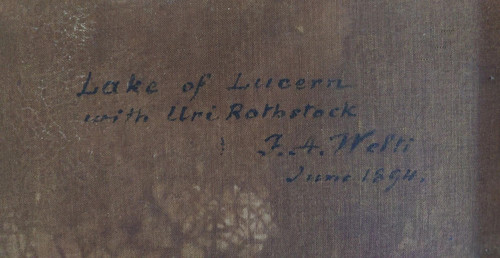 Lake of Lucern
with Uri Rothstock
F. A. Welti
June 1894.